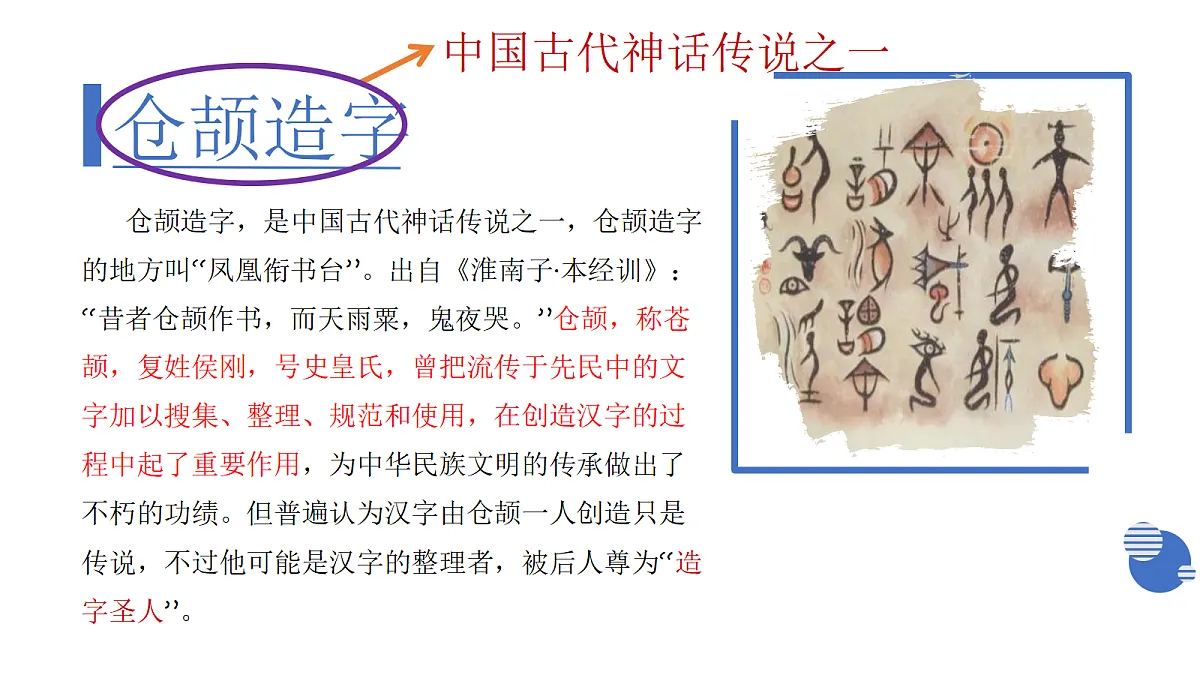 中国古代神话传说之一
仓颉造字
仓颉造字，是中国古代神话传说之一，仓颉造字
的地方叫“凤凰衔书台”。出自《淮南子·本经训》：
“昔者仓颉作书，而天雨粟，鬼夜哭。”仓颉，称苍
颉，复姓侯刚，号史皇氏，曾把流传于先民中的文
字加以搜集、整理、规范和使用，在创造汉字的过
程中起了重要作用，为中华民族文明的传承做出了
不朽的功绩。但普遍认为汉字由仓颉一人创造只是
传说，不过他可能是汉字的整理者，被后人尊为“造
字圣人”。